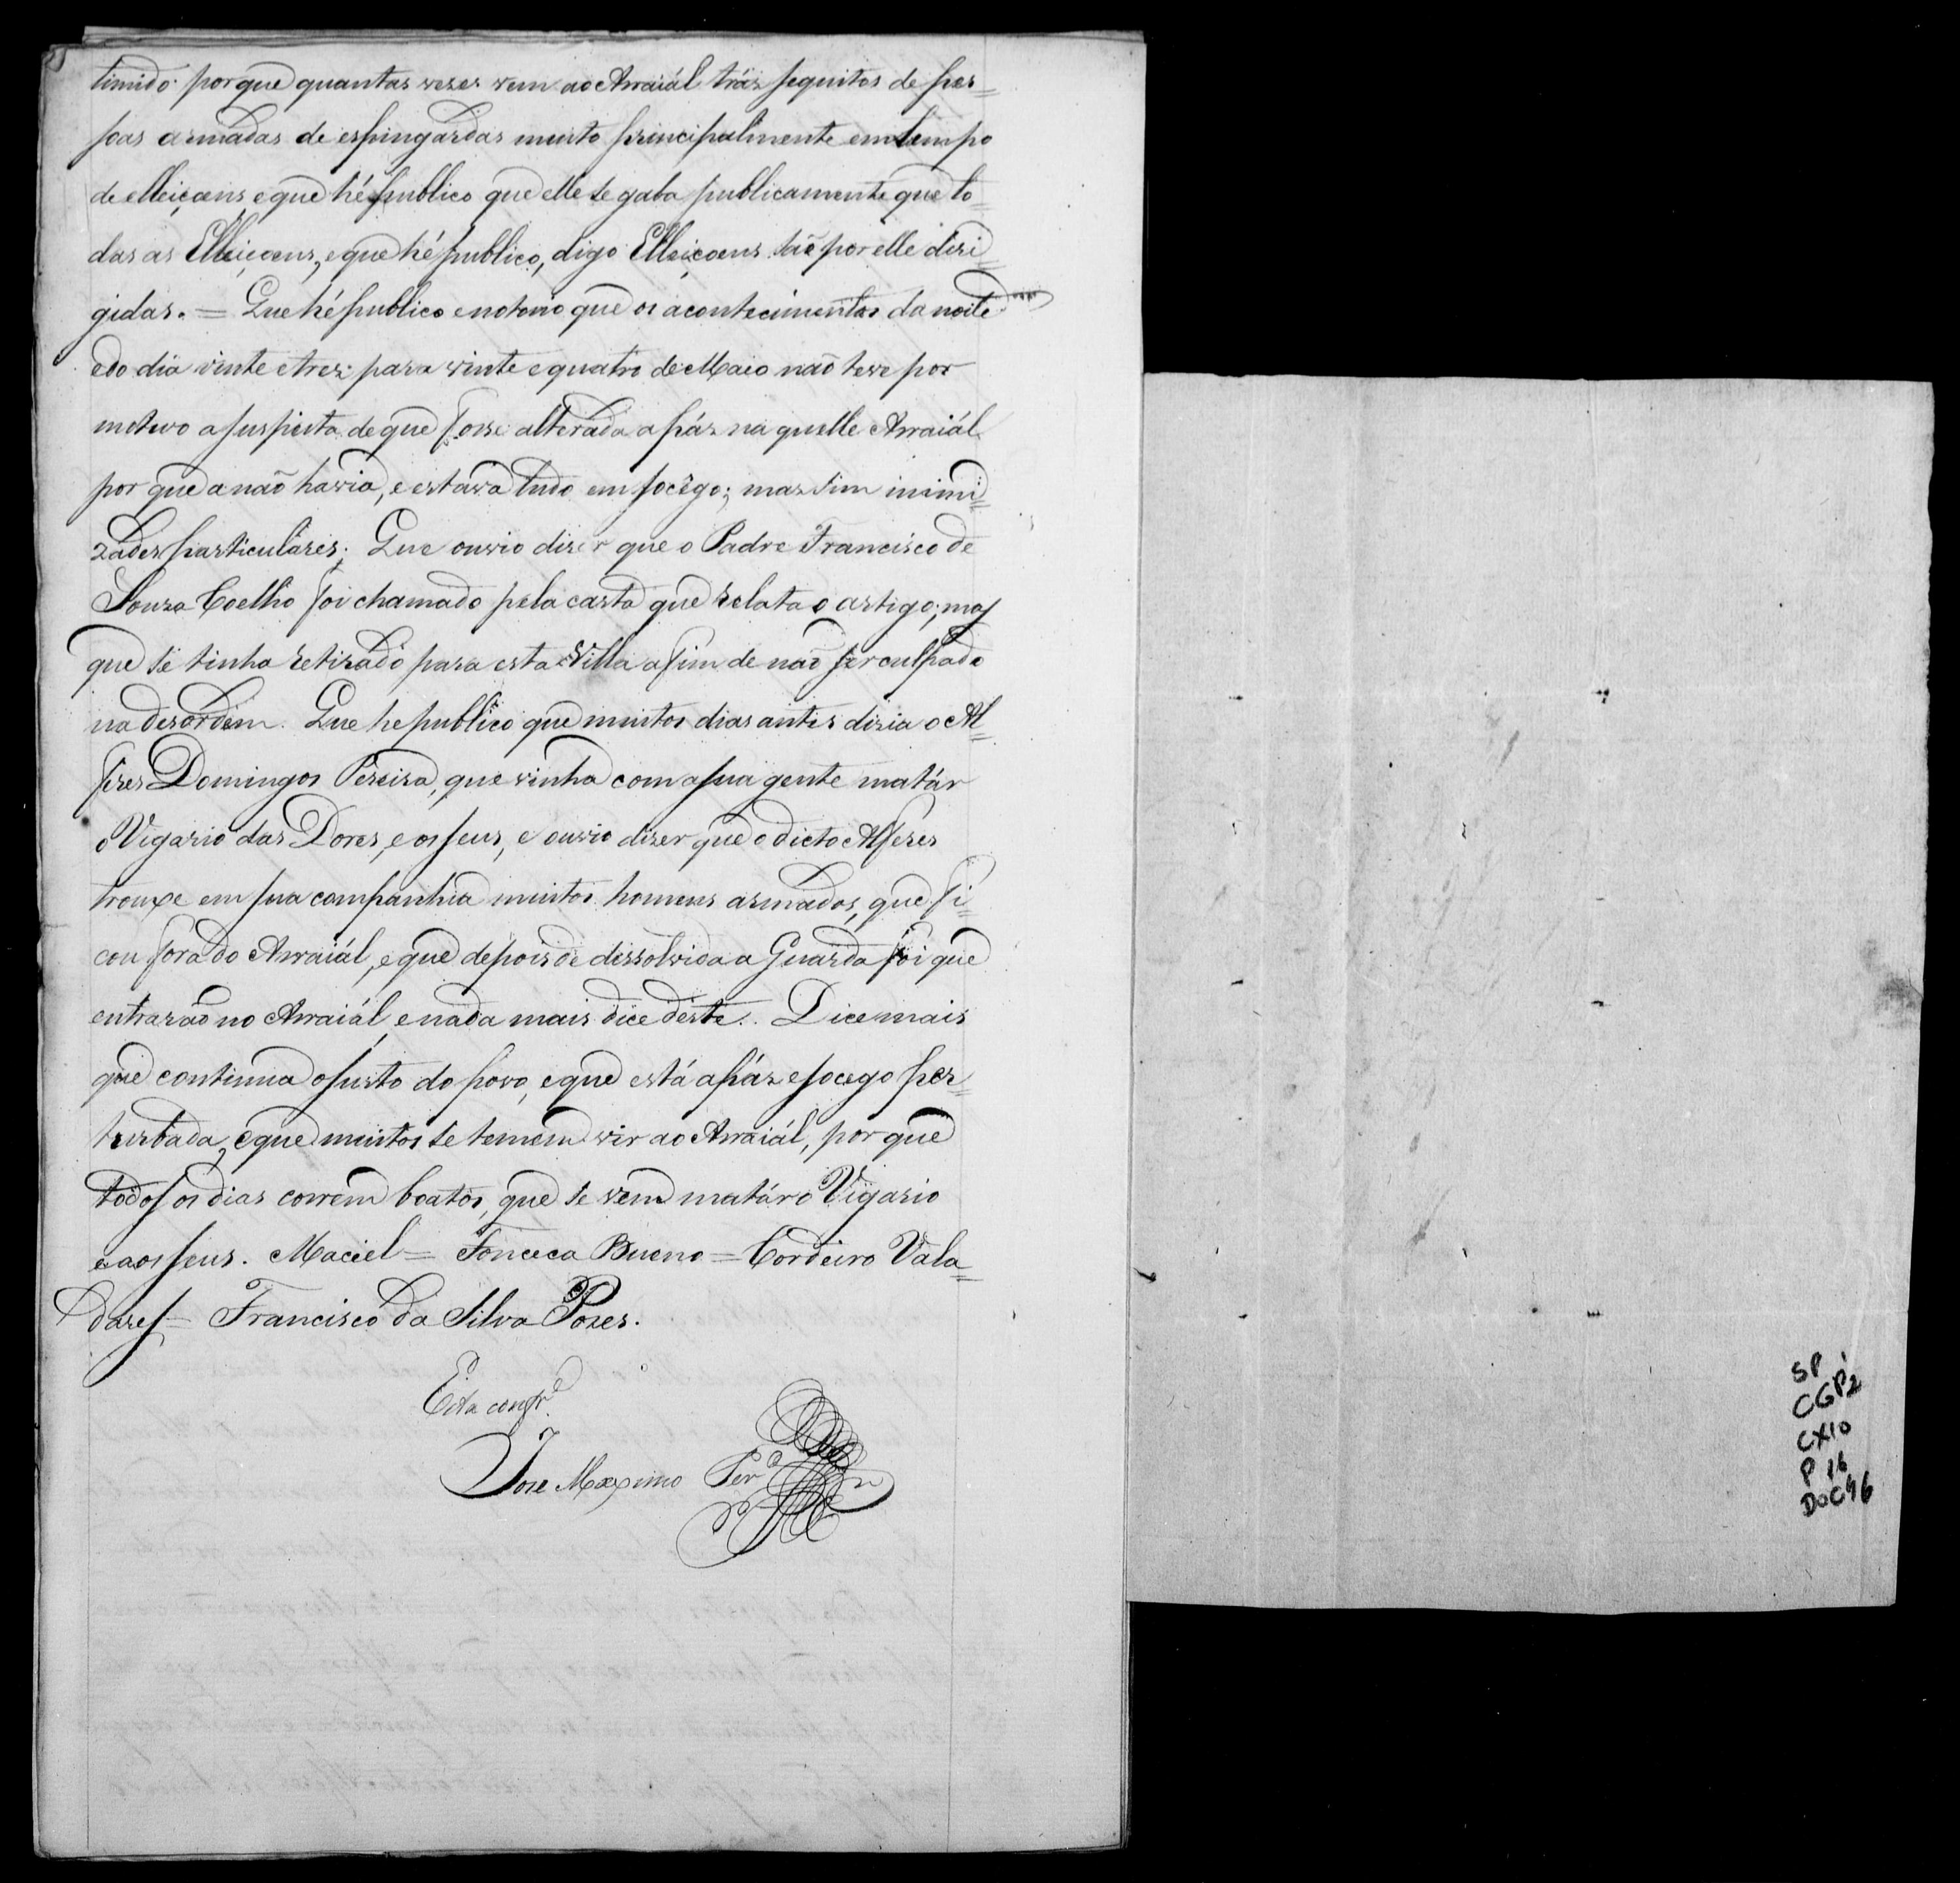 timido: porque quantas vezes vem ao Arraiál tráz sequitos de pes=
soas armadas de espingardas muito principalmente em tempo
de elleiçoens, e que hé publico que elle se gaba publicamente que to=
das as Elleiçoens, e que hé publico, digo Elleiçoens são por elle diri=
gidas. = Que hé publico e notorio que os acontecimentos da noite
edo dia vinte e trez para vinte e quatro de Maio naõ teve por
motivo a suspeita de que fosse alterada a páz na quelle Arraiál
por que a naõ havia, e estava tudo em socêgo; mas sim inimi=
zades particulares; Que ouvio dizer que o Padre Francisco de
Souza Coelho foi chamado pela carta que relata o artigo; mas
que se tinha retirado para esta Villa a fim de naõ ser culpado
na desordem. Que he publico que muitos dias antes dizia o Al=
feres Domingos Pereira, que vinha com a sua gente matár
o Vigario das Dores, e os seus, e ouvio dizer que o dicto Alferes
trouxe em sua companhia muitos homens armados, que fi=
cou fora do Arraiál, e que depois de dissolvida a Guarda foi que
entraraõ no Arraiál, e nada mais dice deste. Dice mais
que continua o susto do povo, e que está a páz e socego per=
turbada, e que muitos se temem vir ao Arraiál, por que
todos os dias correm boatos, que se vem matár o Vigario
e aos seus. Maciel = Fonceca Bueno = Cordeiro Vala=
dares = Francisco da Silva Pores.
Esta confr.e
Jose Maximo Per.a
SP
CGP2
CX10
P 16
DOC46